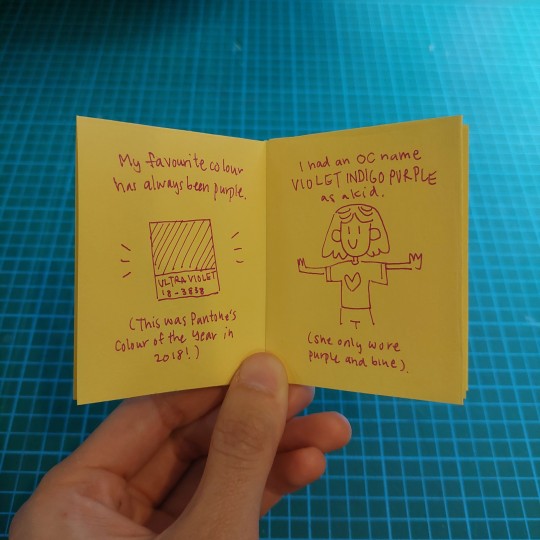 My favourite colour
has always been purple.
ULTRA VIOLET
18-3838
(This was Pantone's
Colour of the Year in
2018!)
I had an OC name
VIOLET INDIGO PURPLE
as a kid.
(she only wore
purple and blue).